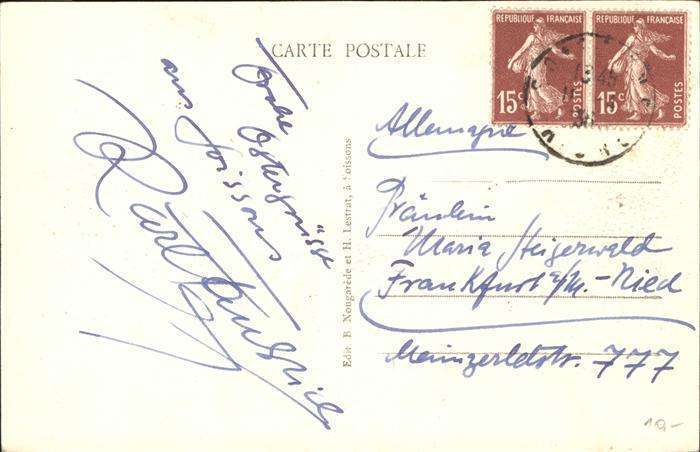 CARTE POSTALE
RÉPUBLIQUE FRANÇAISE
15c
POSTES
RÉPUBLIQUE FRANÇAISE
15c
POSTES
Frohe Ostergrüsse
aus Soissons
Karl
Edit. B Nongarède et H. Lestrat, à Soissons
Allemagne
Fräulein
Maria Steigerwald
Frankfurt a/M.-Nied
Mainzerldstr. 777
10,-